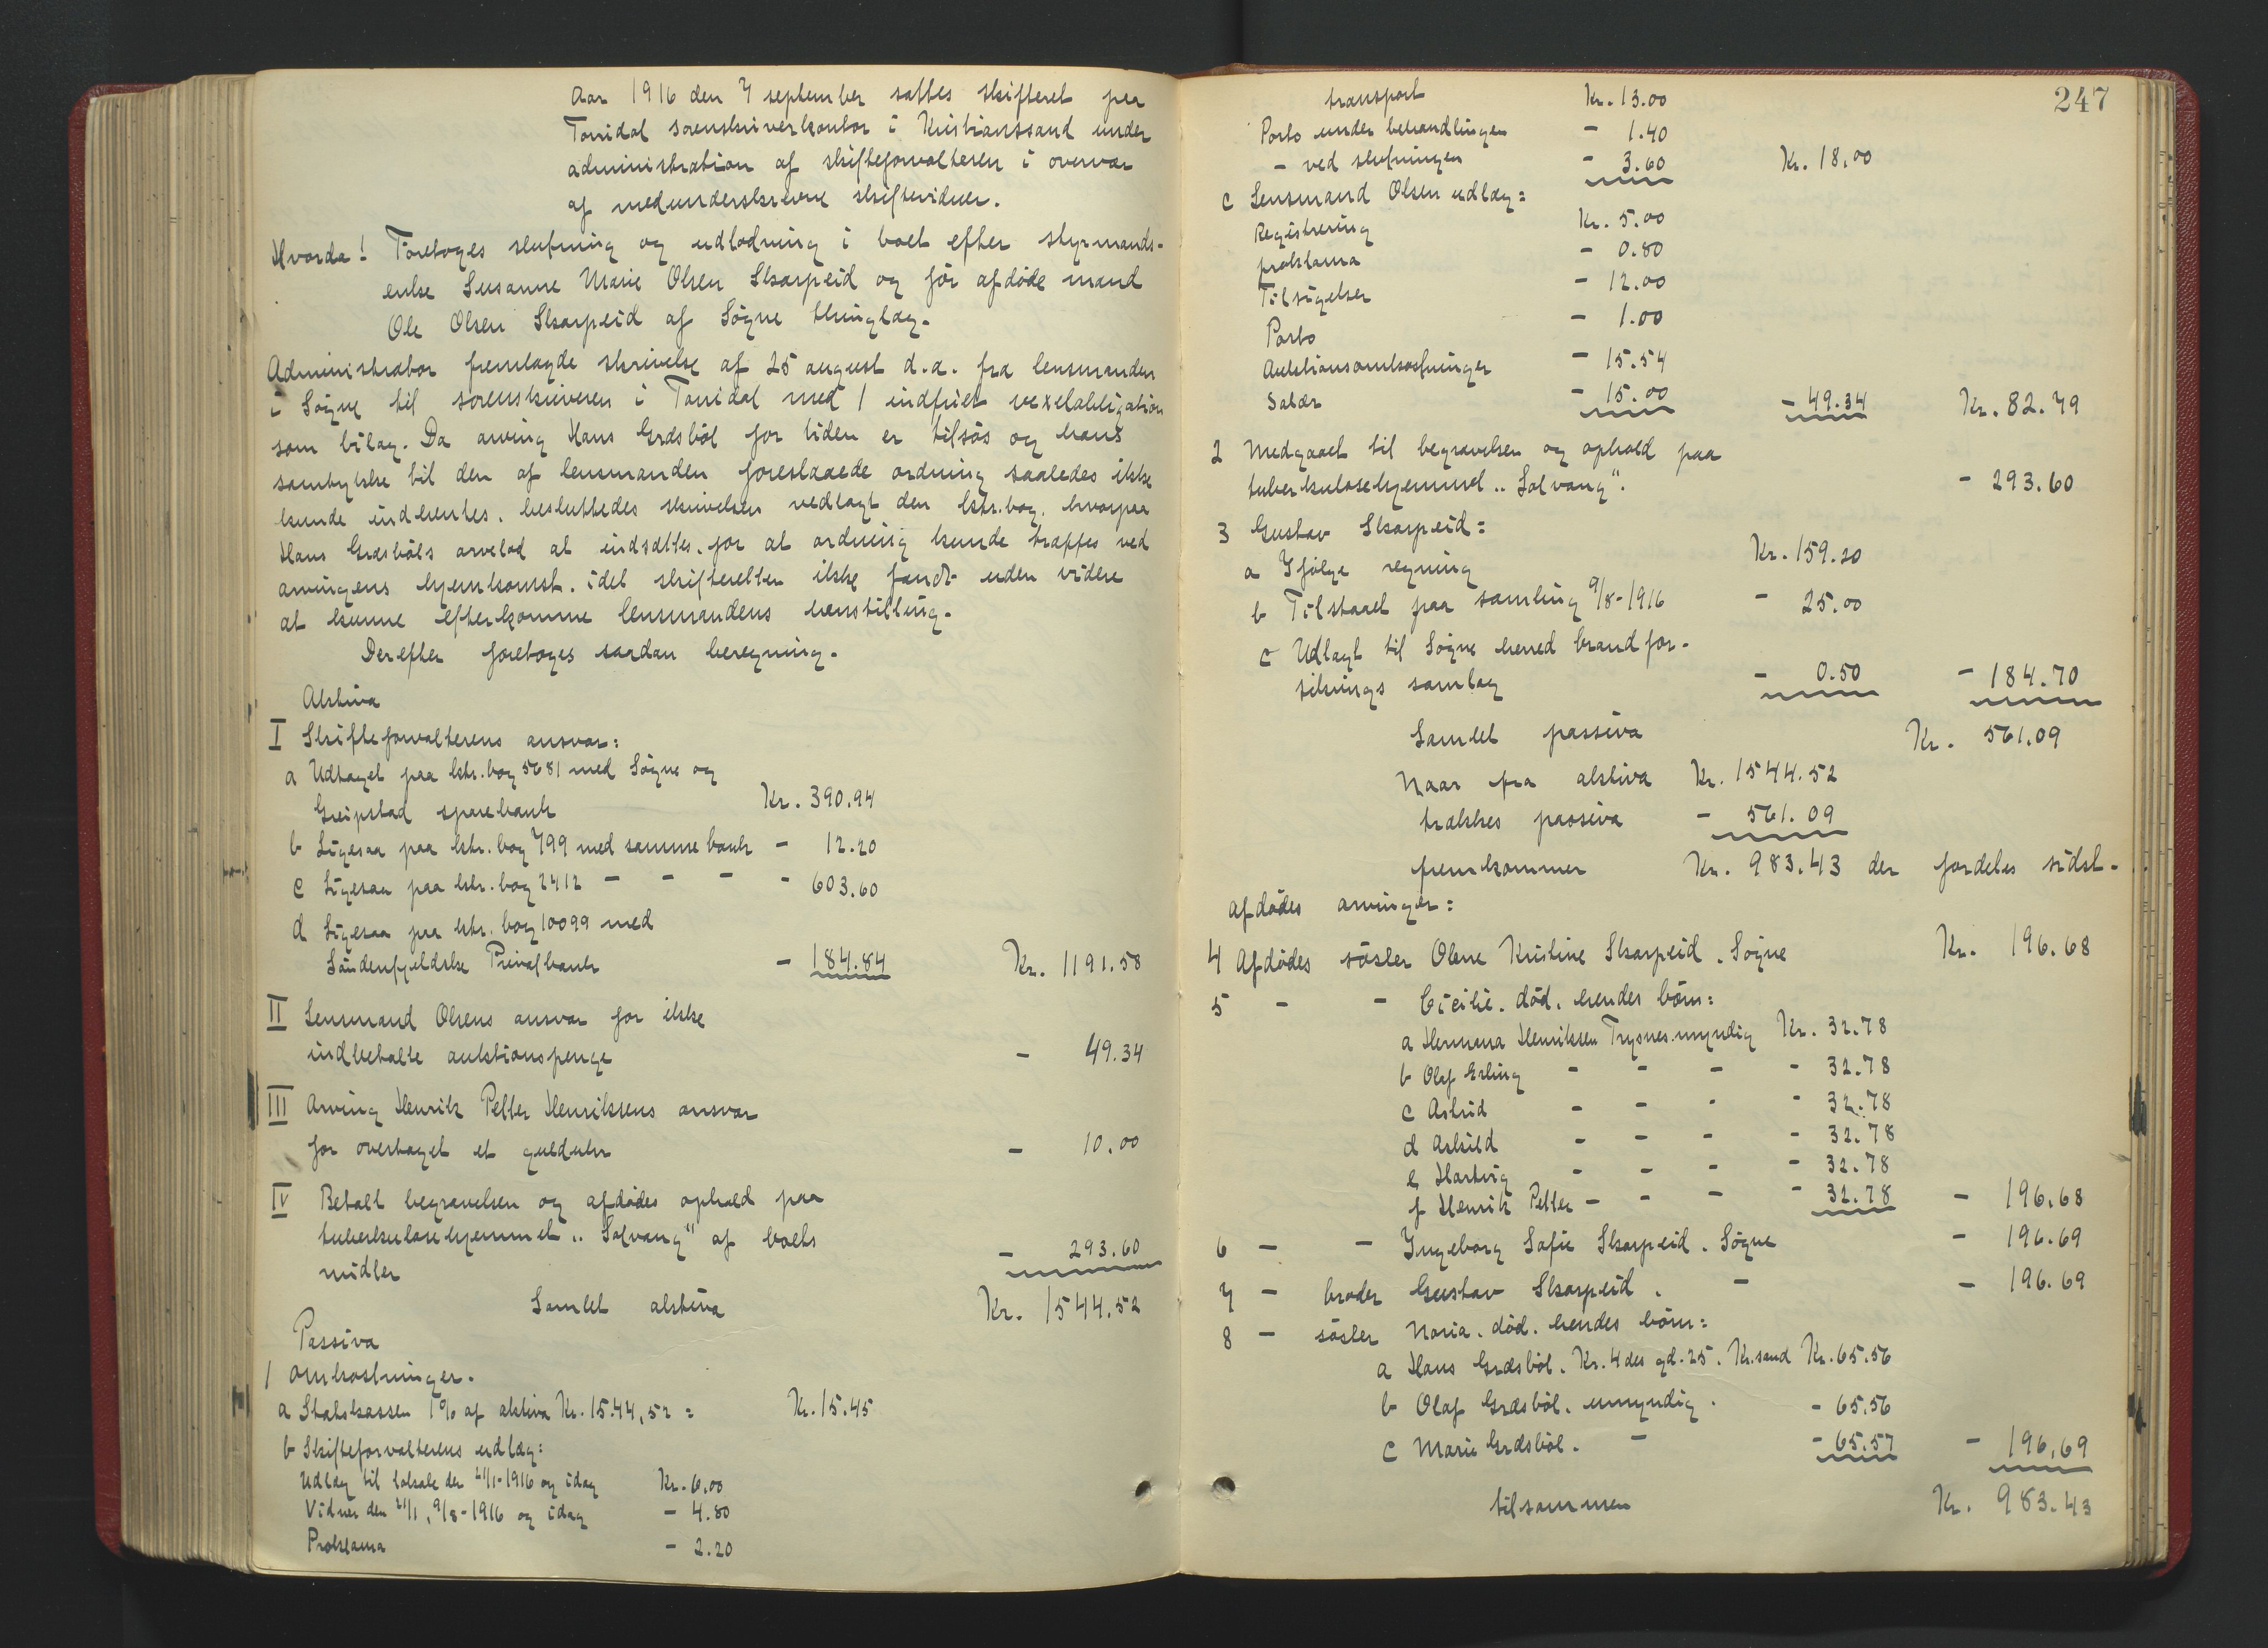 Aar 1916 den 7 september sattes skifteret paa
Torridal sorenskriverkontor i Kristianssand under
administration af skifteforvalteren i overvær
af medunderskrevne skiftevidner.
Hvorda! Foretoges slutning og udlodning i boet efter styrmands-
enke Susanne Marie Olsen Skarpeid og før afdøde mand
Ole Olsen Skarpeid af Søgne thinglag.
Administrator fremlagde skrivelse af 25 august d.a. fra lensmanden
i Søgne til sorenskriveren i Torridal med 1 indfriet vexelobligation
som bilag. Da arving Hans Grdsbøl for tiden er tilsøs og hans
samtykke til den af lensmanden foreslaaede ordning saaledes ikke
kunde indhentes, besluttedes skrivelsen vedlagt den ktr.bog, hvorpaa
Hans Grdsbøls arvelod at indsættes, for at ordning kunde træffes ved
arvingens hjemkomst, idet skifteretten ikke fandt uden videre
at kunne efterkomme lensmandens henstilling.
Derefter foretoges saadan beregning.
Aktiva
I Skifteforvalterens ansvar:
a Udtaget paa ktr.bog 5681 med Søgne og
Greipstad sparebank Kr. 390.94
b Ligesaa paa ktr.bog 799 med samme bank - 12.20
c Ligesaa paa ktr.bog 2412 - - - - 603.60
d Ligesaa paa ktr.bog 10099 med
Søndenfjeldske Privatbank - 184.84 Kr. 1191.58
II Lensmand Olsens ansvar for ikke
indbetalte auktionspenge - 49.34
III Arving Henrik Petter Henriksens ansvar
for overtaget et guldur - 10.00
IV Betalt begravelsen og afdødes ophold paa
tuberkulosehjemmet „Solvang" af boets
midler - 293.60
Samlet aktiva Kr. 1544.52
Passiva
1 Omkostninger.
a Statskassen 1% af aktiva Kr. 15.44,52 = Kr. 15.45
b Skifteforvalterens udlæg:
Udlæg til lokale den 21/1-1916 og idag Kr. 6.00
Vidner den 21/1, 9/8-1916 og idag - 4.80
Proklama - 2.20
247
transport Kr. 13.00
Porto under behandlingen - 1.40
- ved slutningen - 3.60 Kr. 18.00
c Lensmand Olsen udlæg:
Registrering Kr. 5.00
proklama - 0.80
Tilsigelser - 12.00
Porto - 1.00
Auktionsomkostninger - 15.54
Salær - 15.00 - 49.34 Kr. 82.79
2 Medgaaet til begravelsen og ophold paa
tuberkulosehjemmet „Solvang". - 293.60
3 Gustav Skarpeid:
a Ifølge regning Kr. 159.20
b Tilstaaet paa samling 9/8-1916 - 25.00
c Udlagt til Søgne herred brandfor-
sikrings samlag - 0.50 - 184.70
Samlet passiva Kr. 561.09
Naar fra aktiva Kr. 1544.52
trækkes passiva - 561.09
fremkommer Kr. 983.43 der fordeles sidst-
afdødes arvinger:
4 Afdødes søster Olene Kristine Skarpeid, Søgne Kr. 196.68
5 - - Cicilie, død, hendes børn:
a Hermana Henriksen Trysnes, myndig Kr. 32.78
b Olaf Erling - - - - 32.78
c Astrid - - - - 32.78
d Arkild - - - - 32.78
e Hartvig - - - - 32.78
f Henrik Petter - - - - 32.78 - 196.68
6 - - Ingeborg Sofie Skarpeid, Søgne - 196.69
7 - broder Gustav Skarpeid, - - 196.69
8 - søster Maria, død, hendes børn:
a Hans Grdsbøl, Kr. 4des gd. 25, Kr.sand Kr. 65.56
b Olaf Grdsbøl, umyndig. - 65.56
c Marie Grdsbøl, - - 65.57 - 196.69
tilsammen Kr. 983.43